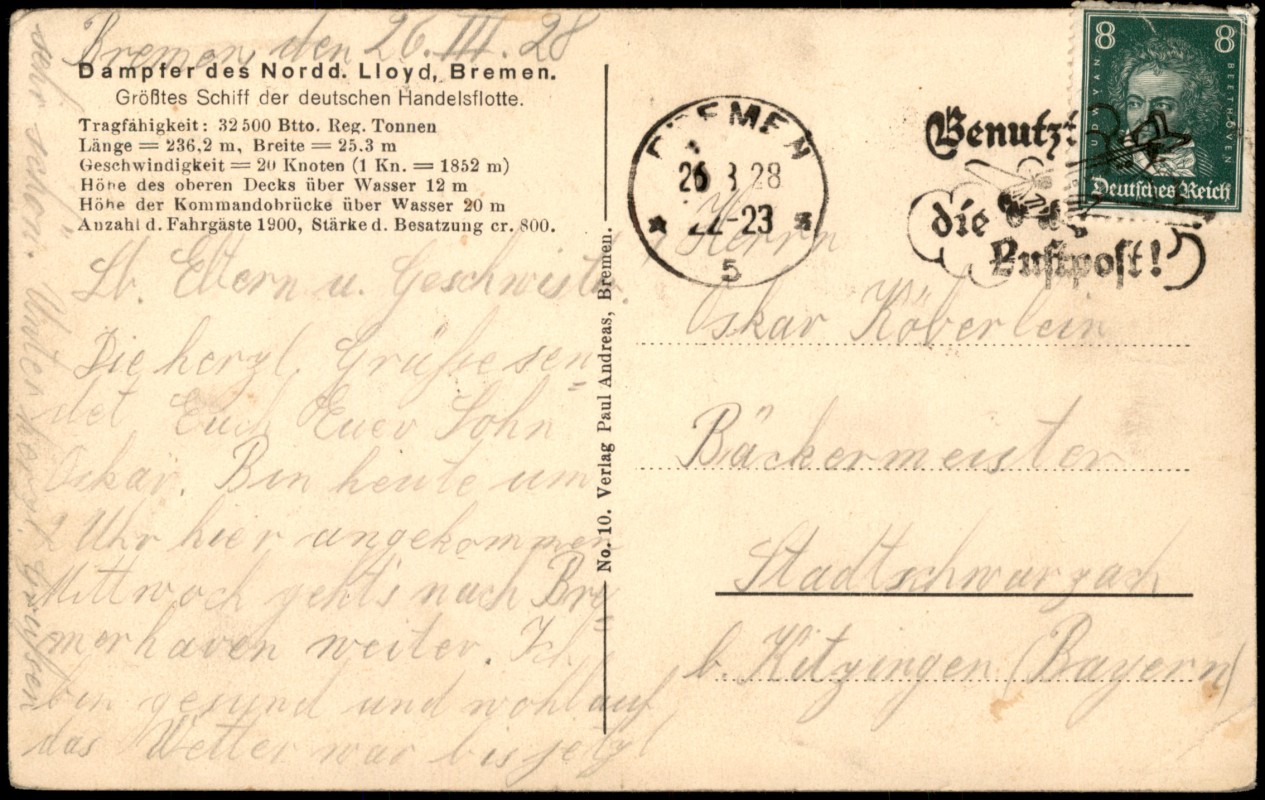 Bremen, den 26.III.28
Dampfer des Nordd. Lloyd, Bremen.
Größtes Schiff der deutschen Handelsflotte.
Tragfähigkeit: 32500 Btto. Reg. Tonnen
Länge = 236,2 m, Breite = 25.3 m
Geschwindigkeit = 20 Knoten (1 Kn. = 1852 m)
Höhe des oberen Decks über Wasser 12 m
Höhe der Kommandobrücke über Wasser 20 m
Anzahl d. Fahrgäste 1900, Stärke d. Besatzung cr. 800.
Lb. Eltern u. Geschwister.
Die herzl. Grüße sen=
det Euch Euer Sohn
Oskar. Bin heute um
2 Uhr hier angekommen
Mittwoch geht's nach Bre=
merhaven weiter. Ich
bin gesund und wohlauf
das Wetter war bis jetzt
sehr schön. Unter herzl. Grüßen
No. 10. Verlag Paul Andreas, Bremen.
BREMEN
26 3 28
22-23
5
Benutzt
die
Luftpost!
8 8
LUDWIG VAN
BEETHOVEN
Deutsches Reich
Herrn
Oskar Köberlein
Bäckermeister
Stadtschwarzach
b. Kitzingen (Bayern)